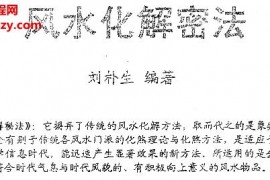 风水化解密法
刘朴生 编著
解秘法》：它摒弃了传统的风水化解方法，取而代之的是象
全有别于传统各风水门派的化煞理论与化煞方法，是适应于
信息时代，能迅速产生显著效果的新方法，所运用的是
符合时代气息与时代风貌的、有积极向上意义的风水物品。